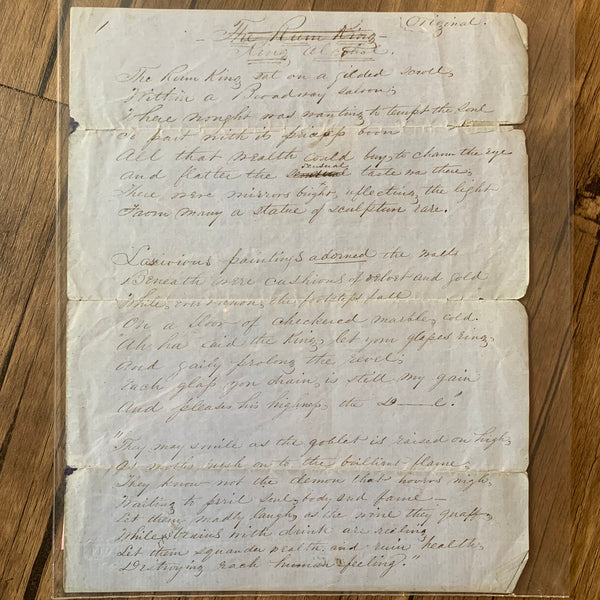 1 Original.
The Rum King
King Alcohol.
The Rum King sat on a gilded scroll,
Within a Broadway saloon;
Where nought was wanting to tempt the soul
To part with its precious boon
All that wealth could buy, to charm the eye
And flatter the sensual taste was there,
There were mirrors bright, reflecting the light
From many a statue of sculpture rare.
Lascivious paintings adorned the walls
Beneath were cushions of velvet and gold
While, ever & anon, the footsteps fall
On a floor of checkered marble, cold.
Ah ha said the King, let your glasses ring,
And gaily prolong the revel;
Each glass you drain, is still my gain
And pleases his highness, the D——l."
"They may smile as the goblet is raised on high,
As moths rush on to the brilliant flame,
They know not the demon that hovers nigh,
Waiting to peril soul, body and fame—
Let them madly laugh, as the wine they quaff,
While brains with drink are reeling
Let them squander wealth, and ruin health,
Destroying each human feeling."